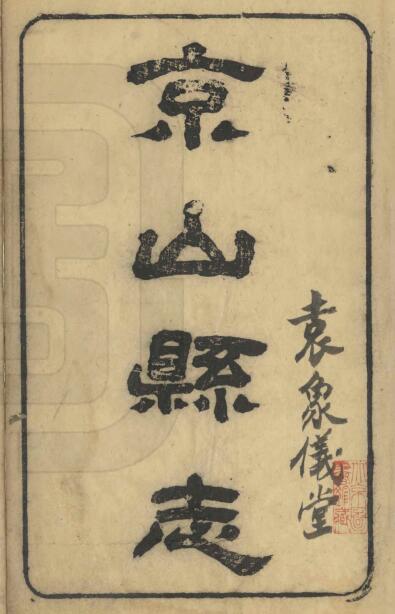 京山縣志
袁象儀堂